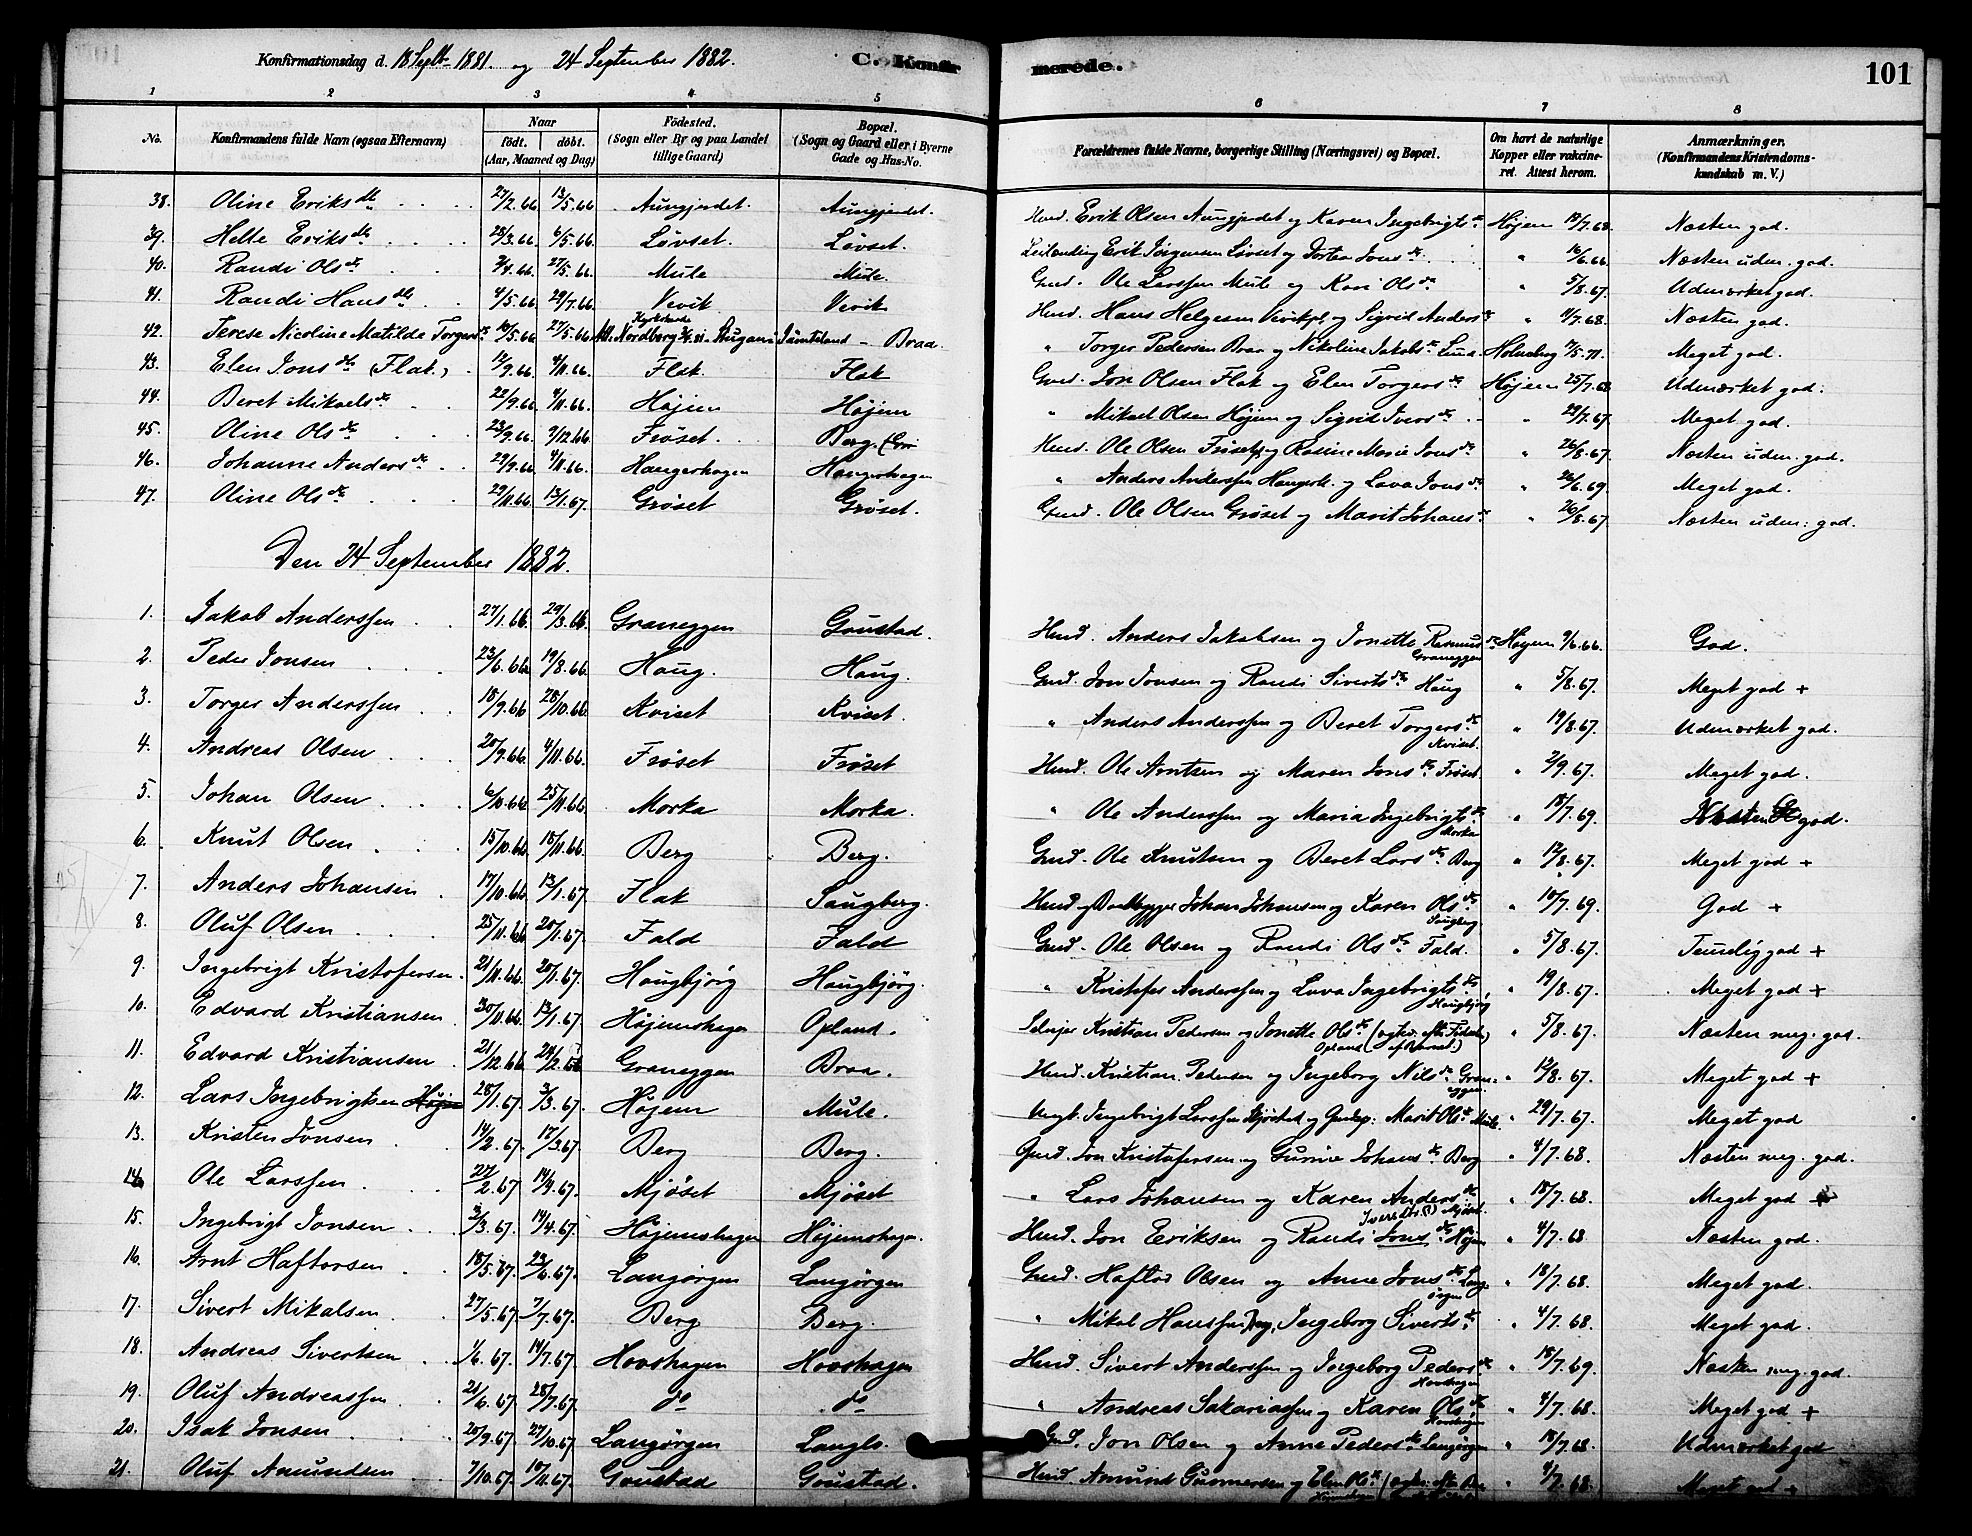 Konfirmationsdag d. 18 Septbr 1881. og 24 September 1882.
C. Konfirmerede.
101
1 2 3 4 5 6 7 8
No.
Konfirmandens fulde Navn (ogsaa Efternavn)
Naar
födt. döbt.
(Aar, Maaned og Dag)
Födested.
(Sogn eller By og paa Landet
tillige Gaard)
Bopæl.
(Sogn og Gaard eller i Byerne
Gade og Hus-No.
Forældrenes fulde Navne, borgerlige Stilling (Næringsvei) og Bopæl.
Om havt de naturlige
Kopper eller vakcine-
ret. Attest herom.
Anmærkninger.
(Konfirmandens Kristendoms-
kundskab m. V.)
38. Oline Eriksdr 27/2.66. 13/5.66. Aungjerdet. Aungjerdet. Husd. Erik Olsen Aungjerdet og Karen Ingebrigtsdr Højem 19/7.68. Næsten god.
39. Helte Eriksdr 28/3.66. 6/5.66. Løvset. Løvset. Leilending Erik Jørgensen Løvset og Dortea Jonsdr " 10/6.66. Næsten uden. god.
40. Randi Olsdr 7/4.66. 27/5.66. Mule Mule. Grd. Ole Larssen Mule og Kari Olsdr " 5/8.67. Udmærket god.
41. Randi Hansdr 4/5.66. 29/7.66. Vevik Vevik Husd. Hans Helgesen Vevikpl. og Sigrid Andersdr " 11/7.68. Næsten god.
42. Terese Nicoline Matilde Torgersdr 10/5.66 27/5.66 Nordberg Jämteland - Braa. " Torger Pedersen Braa og Nikoline Jakobsdr Holmberg 7/5.71. Meget god.
43. Elen Jonsdr (Flak.) 12/9.66 4/11.66. Flak. Flak Grd. Jon Olsen Flak og Elen Torgersdr Højem 25/7.68 Udmærket god.
44. Beret Mikaelsdr 22/9.66 4/11.66. Højem Højem " Mikael Olsen Højem og Sigrid Iversdr " 29/7.67. Meget god.
45. Oline Olsdr 23/9.66. 9/12.66 Frøset. Berg. Husd. Ole Olsen Frøsetpl. og Rasine Marie Jonsdr " 26/8.67. Næsten uden. god.
46. Johanne Andersdr 29/9.66 4/11.66. Haugerhagen Haugerhagen " Anders Anderssen Haugerh. og Lava Jonsdr " 26/6.69. Meget god.
47. Oline Olsdr 29/11.66 13/1.67. Grøset Grøset. Grd. Ole Olsen Grøset og Marit Johansdr " 26/8.67 Næsten uden: god.
Den 24 September 1882.
1. Jakob Anderssen 27/1.66. 29/3.66 Graneggen Goustad. Husd. Anders Jakobsen og Jonette Rasmusdr Graneggen Højem 9/6.66. God.
2. Peder Jonsen 23/6.66. 19/8.66. Haug. Haug. Grd. Jon Jonsen og Randi Sivertsdr Haug " 5/8.67. Meget god +
3. Torger Anderssen 18/9.66 28/10.66. Kviset Kviset. " Anders Anderssen og Beret Torgersdr Kviset. " 19/8.67. Udmærket god.
4. Andreas Olsen 20/9.66. 4/11.66. Frøset Frøset Husd. Ole Arntsen og Maren Jonsdr Frøset. " 2/9.67. Meget god.
5. Johan Olsen 6/10.66. 25/11.66 Morka Morka. " Ole Anderssen og Maria Ingebrigtsdr Morka " 18/7.69. god.
6. Knut Olsen 15/10.66 18/11.66 Berg Berg. Grd. Ole Knutsen og Beret Larsdr Berg " 12/8.67. Meget god +
7. Anders Johansen 17/10.66 13/1.67. Flak Saugberg. Husd. Johan Johansen og Karen Olsdr Saugberg " 10/7.69. God +
8. Oluf Olsen 25/11.66 20/1.67. Fald Fald Grd. Ole Olsen og Randi Olsdr Fald. " 5/8.67. Temelig god +
9. Ingebrigt Kristofersen 21/11.66. 20/1.67. Haugbjørg Haugbjørg. " Kristofer Anderssen og Lava Ingebrigtsdr Haugbjørg " 19/8.67. Meget god +
10. Edvard Kristiansen 30/11.66. 13/1.67. Højemshagen Opland. Kristian Pedersen og Jonette Olsdr Opland " 5/8.67. Næsten meg. god.
11. Edvard Kristiansen 21/12.66 24/2. Graneggen Braa. Husd. Kristian Pedersen og Ingeborg Nilsdr Graneggen. " 12/8.67. Meget god +
12. Lars Ingebrigtsen Højem 28/1.67. 3/3.67. Højem Mule. Ingebrigt Larssen Marit Olsdr Mule. " 29/7.67. Meget god
13. Kristen Jonsen 14/2.67. 17/3.67 Berg Berg. Grd. Jon Kristofersen og Gurine Johansdr Berg " 4/7.68. Næsten meg. god.
14. Ole Larssen. 27/2.67 14/4.67. Mjøset Mjøset " Lars Johansen og Karen Andersdr Mjøset. " 18/7.68. Meget god +
15. Ingebrigt Jonsen 3/3.67. 14/4.67. Højemshagen Højemshagen. Husd. Jon Eriksen og Randi Jonsdr Iversdtr.(!) Højem " 4/7.68 Næsten god.
16. Arnt Haftorsen 18/5.67. 23/6.67. Langørgen Langørgen Grd. Haftor Olsen og Anne Jonsdr Langørgen " 18/7.68. Meget god.
17. Sivert Mikalsen 27/5.67. 7/7.67. Berg Berg. " Mikal Hanssen og Ingeborg Sivertsdr " 4/7.68. Meget god.
18. Andreas Sivertsen 1/6.67. 14/7.67. Hovshagen Hovshagen Husd. Sivert Anderssen og Ingeborg Pedersdr Hovshagen " 18/7.69. Næsten meg. god.
19. Oluf Andreassen 21/6.67. 28/7.67. do do " Andreas Sakariassen og Karen Olsdr Hovshagen " 4/7.68. Meget god +
20. Isak Jonsen 20/9.67. 27/10.67 Langørgen Langlo. Grd. Jon Olsen og Anne Pedersdr Langørgen " 18/7.68. Udmærket god
21. Oluf Amundsen 7/10.67. 10/11.67. Goustad Goustad. Husd. Amund Gunnersen og Elen Olsdr " 4/7.68. Meget god +